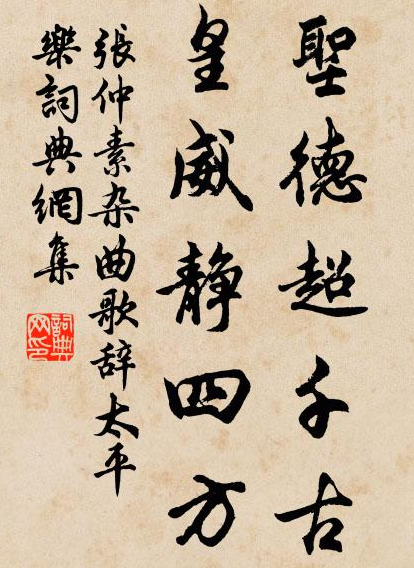 聖德超千古
皇威静四方
張仲素杂曲歌辞太平
樂詞典網集
詞典网印